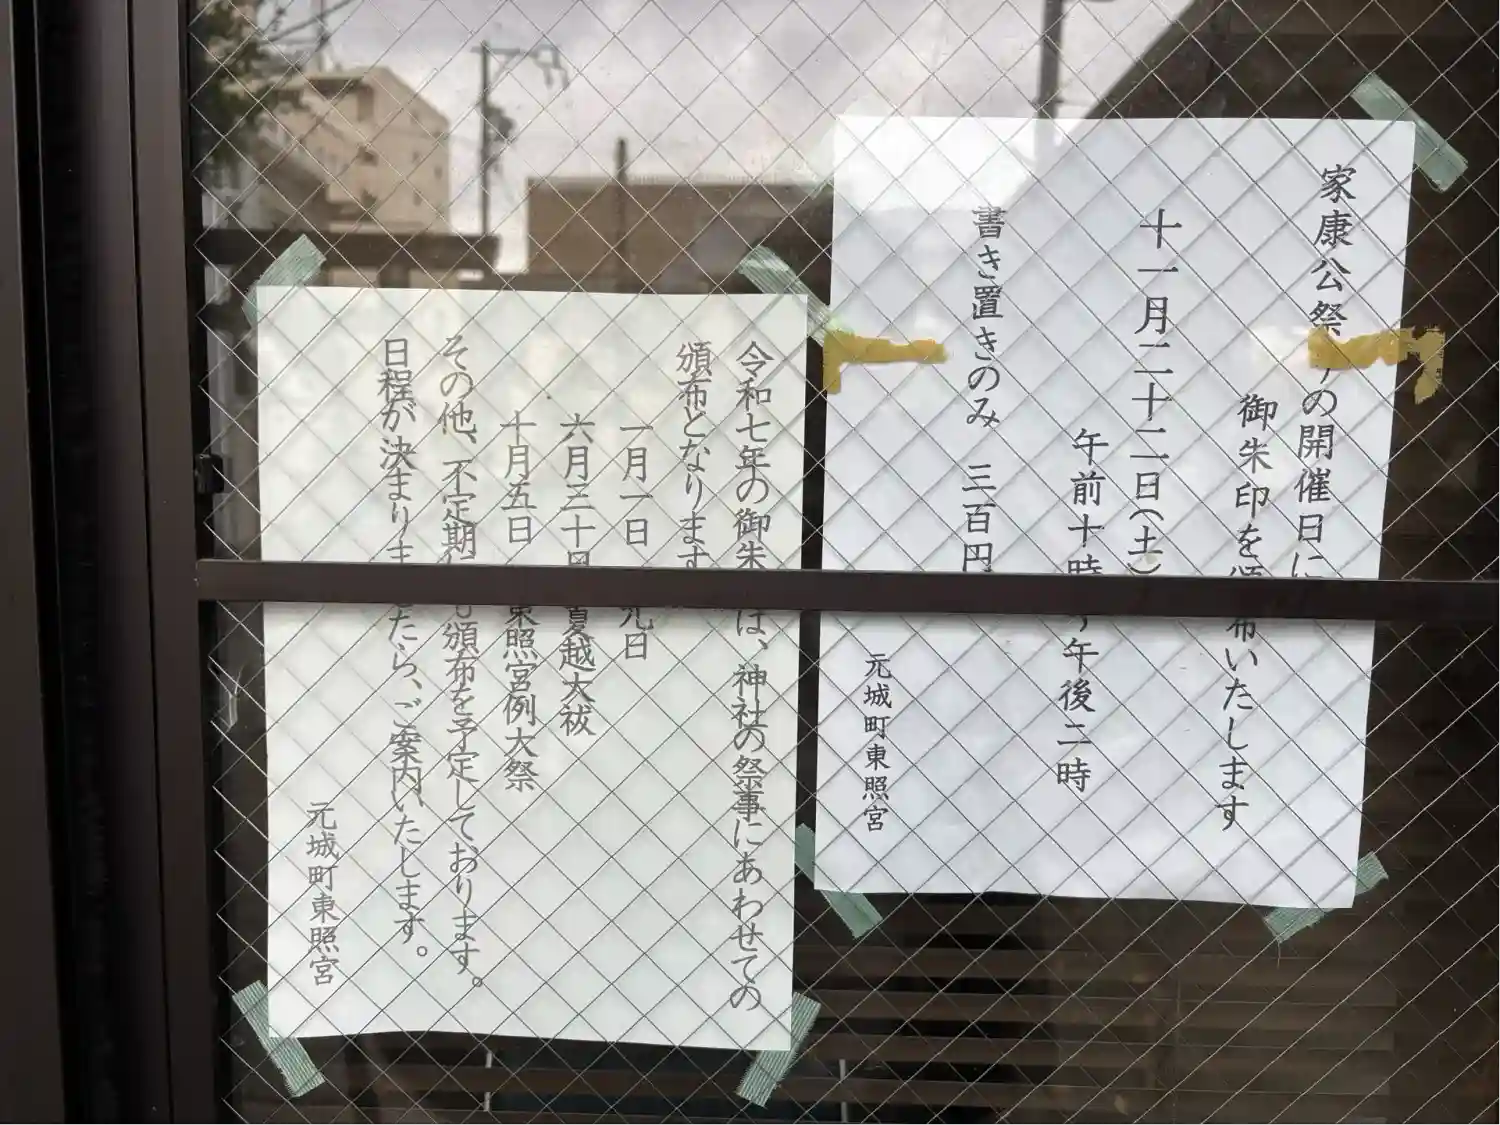 家康公祭りの開催日に
御朱印を頒布いたします
十一月二十二日(土)
午前十時 午後二時
書き置きのみ 三百円
元城町東照宮
令和七年の御朱は、神社の祭事にあわせての
頒布となります
一月一日 元日
六月三十日 夏越大祓
十月五日 東照宮例大祭
その他、不定期にも頒布を予定しております。
日程が決まりましたら、ご案内いたします。
元城町東照宮